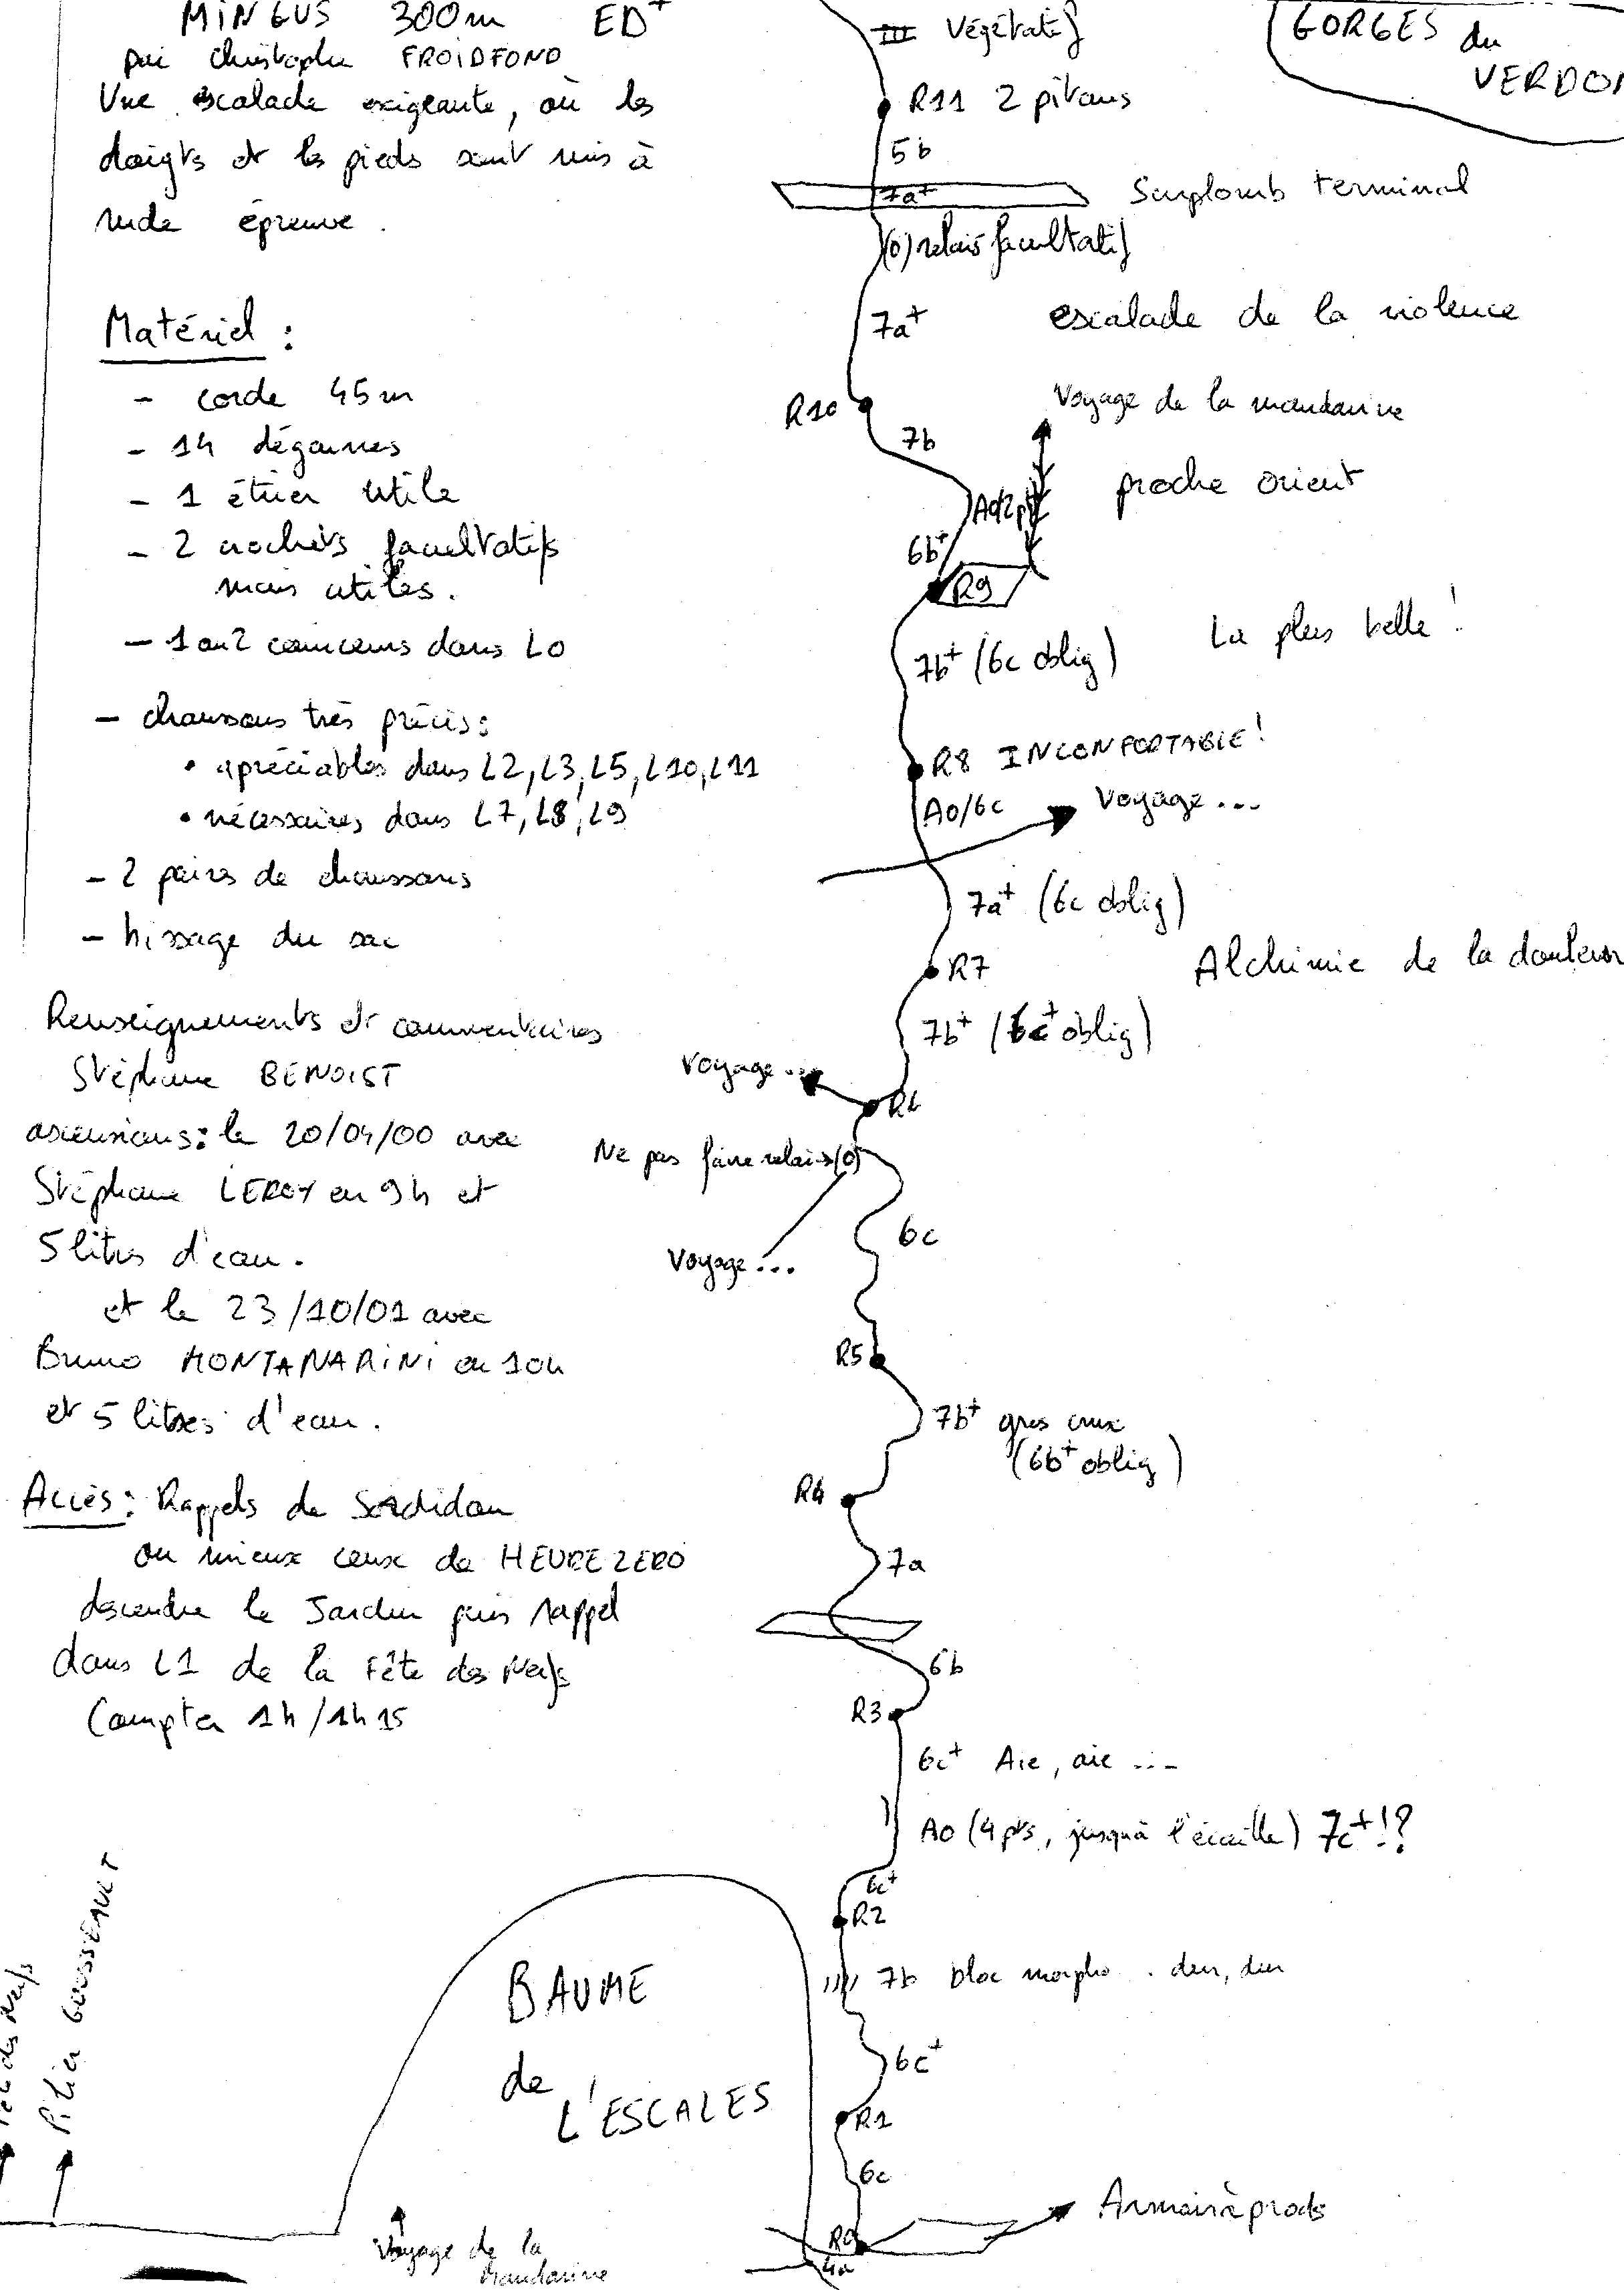 MINGUS 300m ED+
par Christophe FROIDFOND
Une escalade exigeante, où les
doigts et les pieds sont mis à
rude épreuve.
Matériel :
- corde 45m
- 14 dégaines
- 1 étrier utile
- 2 crochets facultatifs
mais utiles.
- 1 ou 2 coinceurs dans L0
- chaussons très précis:
• apréciables dans L2, L3, L5, L10, L11
• nécessaires dans L7, L8, L9
- 2 paires de chaussons
- hissage du sac
Renseignements et commentaires
Stéphane BENOIST
ascensions: le 20/04/00 avec
Stéphane LEROY en 9h et
5 litres d'eau.
et le 23/10/01 avec
Bruno MONTANARINI en 10h
et 5 litres d'eau.
Accès: Rappels de Sordidon
ou mieux ceux de HEURE ZERO
descendre le Jardin puis rappel
dans L1 de la Fête des Nerfs
Compter 1h/1h15
GORGES du
VERDON
III Végétatif
R11 2 pitons
5b
7a+ Surplomb terminal
(0) relais facultatif
7a+ escalade de la violence
R10
Voyage de la mandarine
7b
proche orient
A0/2pt
6b+
R9
7b+ (6c oblig) La plus belle !
R8 INCONFORTABLE!
A0/6c Voyage ...
7a+ (6c oblig)
R7 Alchimie de la douleur
7b+ (6c+ oblig)
Voyage ...
R6
Ne pas faire relais (0)
6c
Voyage ...
R5
7b+ gros crux
(6b+ oblig)
R4
7a
6b
R3
6c+ Aie, aie ...
A0 (4 pts, jusqu'à l'écaille) 7c+!?
6c+
R2
7b bloc morpho . dur, dur
6c+
R1
6c
R0
4a
Armoire à prods
BAUME
de
L'ESCALES
Voyage de la
Mandarine
Fête des Nerfs
Pilier GOUSSEAULT